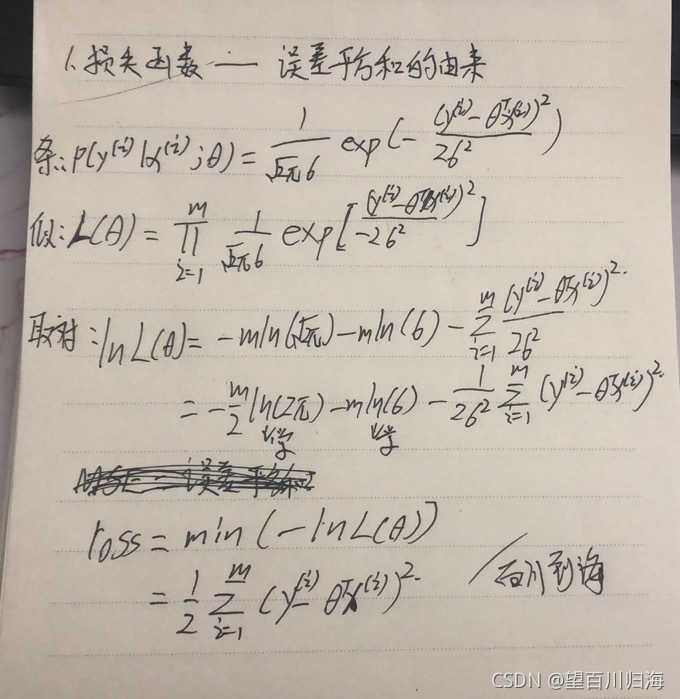 1. 损失函数 — 误差平方和的由来
条: P(y⁽ⁱ⁾|x⁽ⁱ⁾;θ) = 1/(√2π σ) exp(- (y⁽ⁱ⁾ - θᵀx⁽ⁱ⁾)²/2σ²)
似: L(θ) = ∏_{i=1}^{m} 1/(√2π σ) exp[(y⁽ⁱ⁾ - θᵀx⁽ⁱ⁾)²/-2σ²]
取对: ln L(θ) = -m ln(√2π) - m ln(σ) - ∑_{i=1}^{m} (y⁽ⁱ⁾ - θᵀx⁽ⁱ⁾)²/2σ²
= -m/2 ln(2π) - m ln(σ) - 1/2σ² ∑_{i=1}^{m} (y⁽ⁱ⁾ - θᵀx⁽ⁱ⁾)²
loss = min(-ln L(θ))
= 1/2 ∑_{i=1}^{m} (y⁽ⁱ⁾ - θᵀx⁽ⁱ⁾)²
百川到海
CSDN @望百川归海